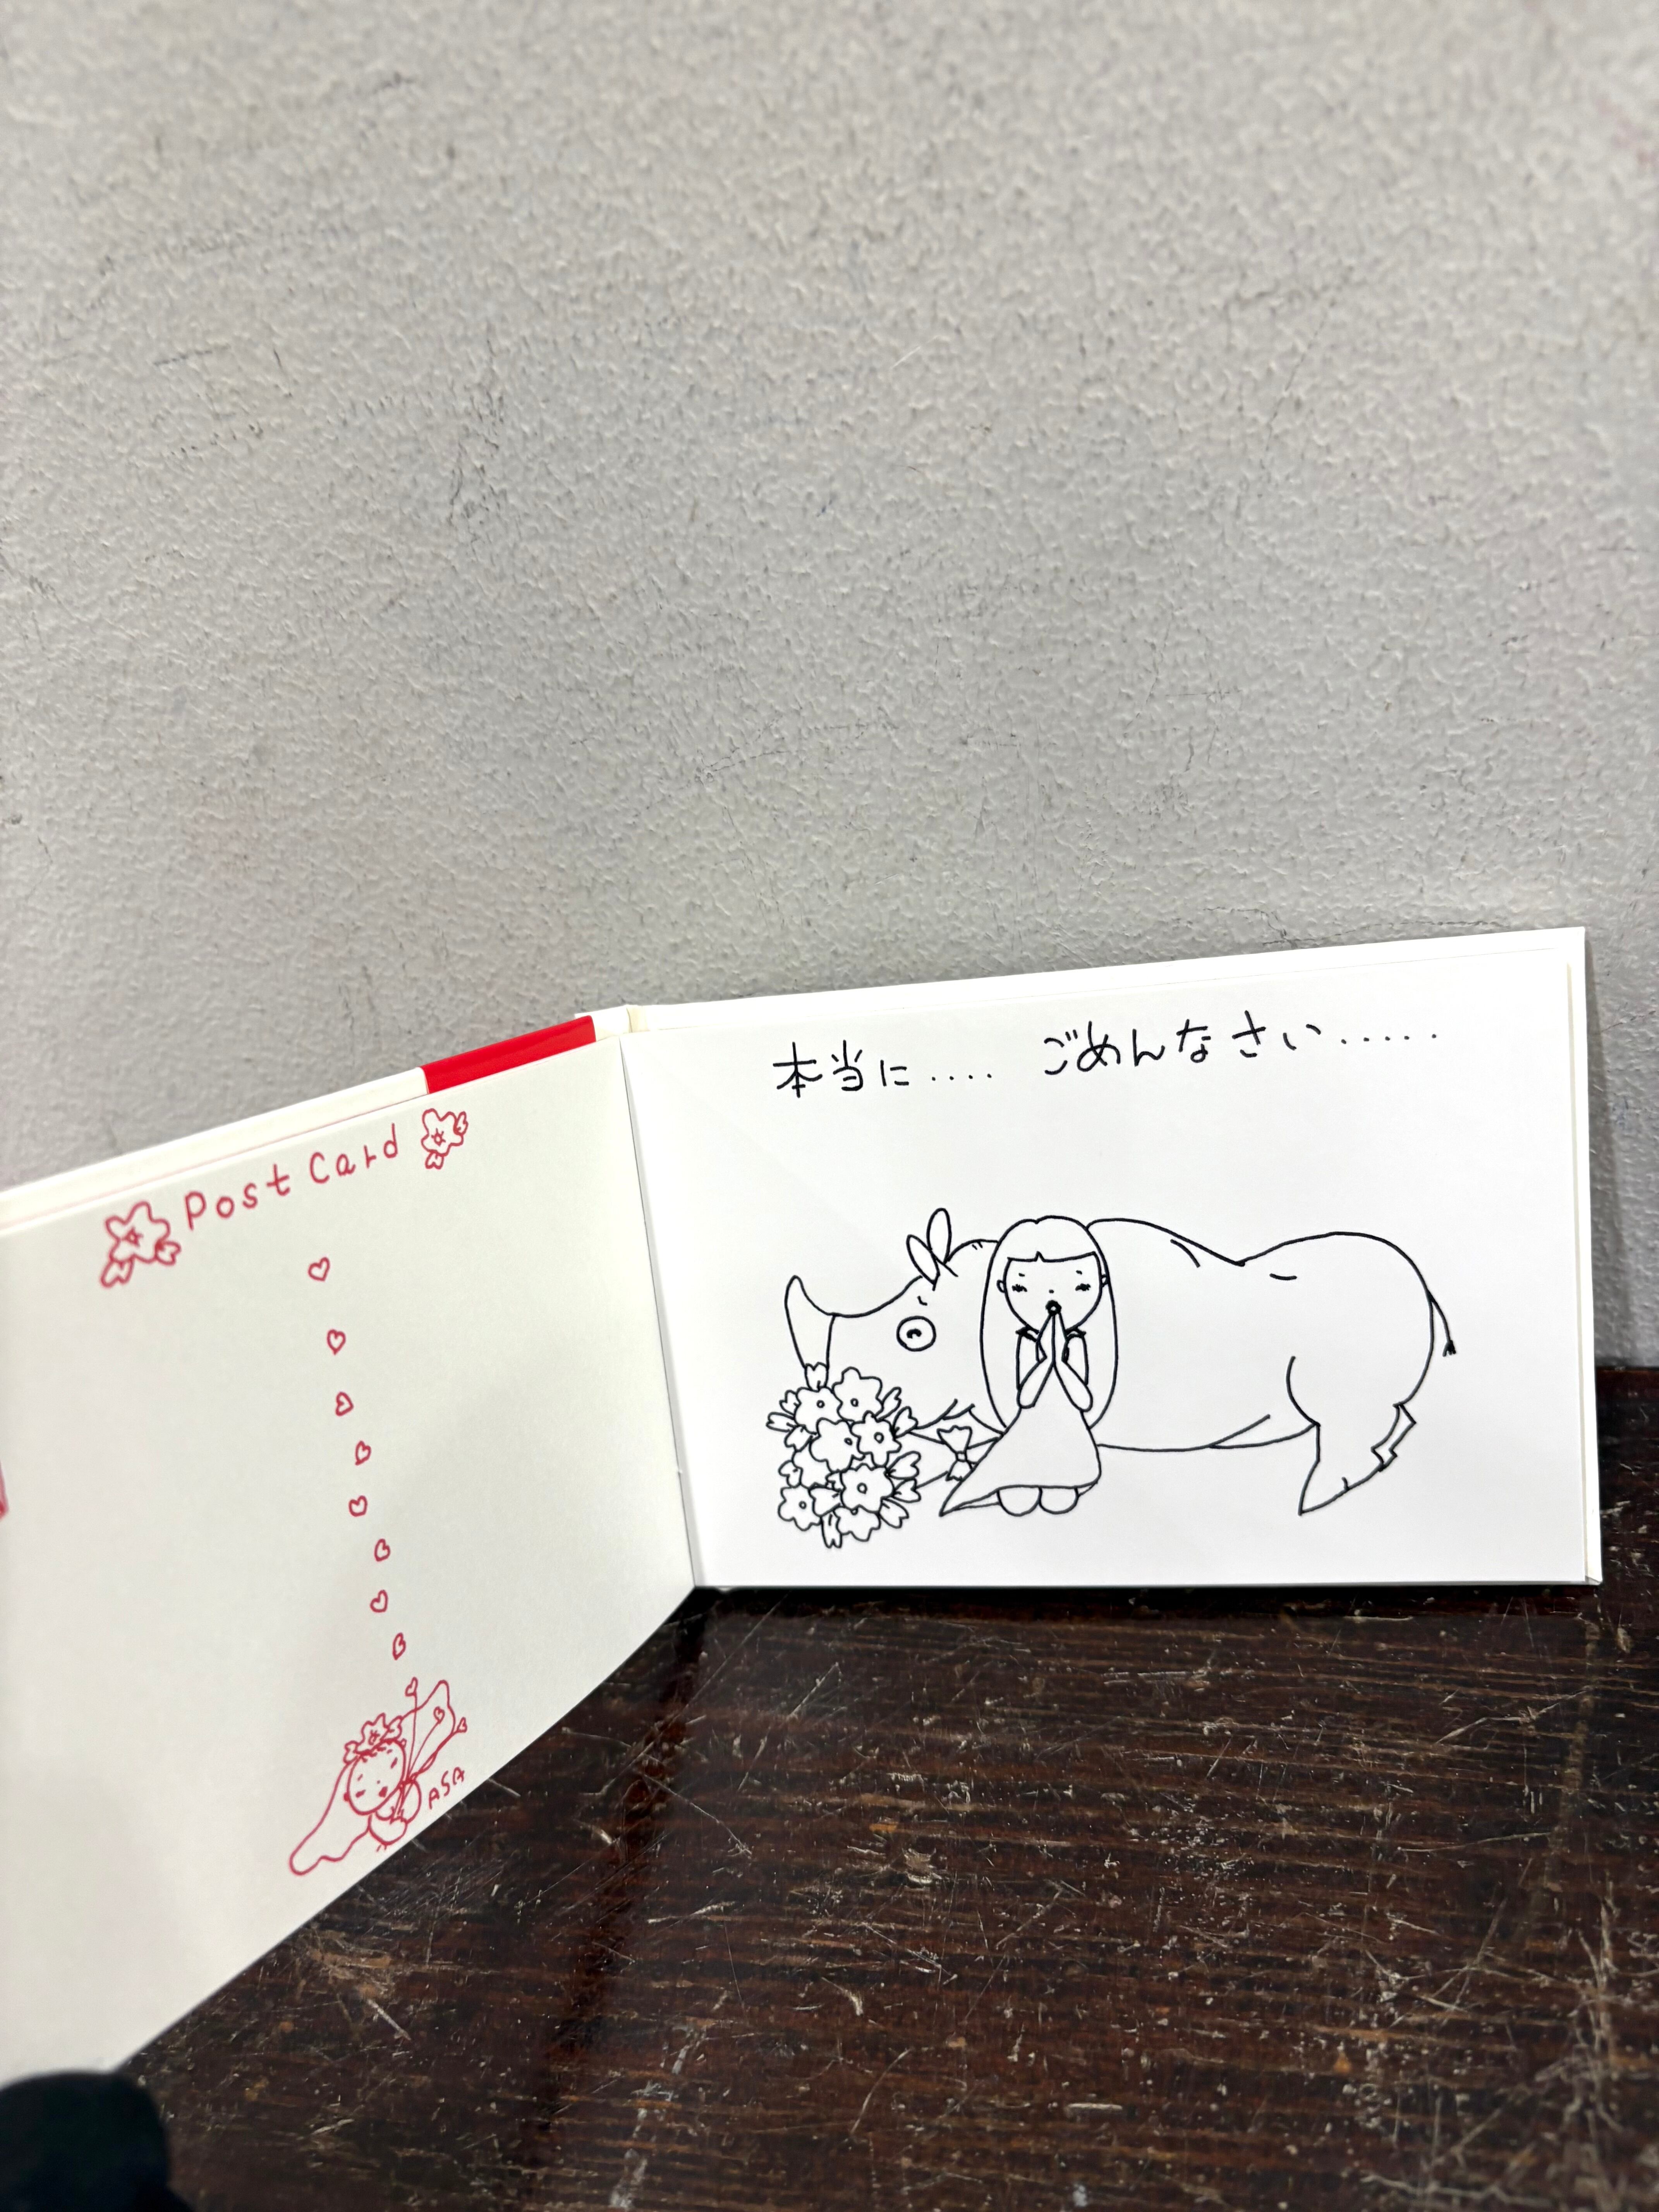 Post Card
ASA
本当に.... ごめんなさい.....